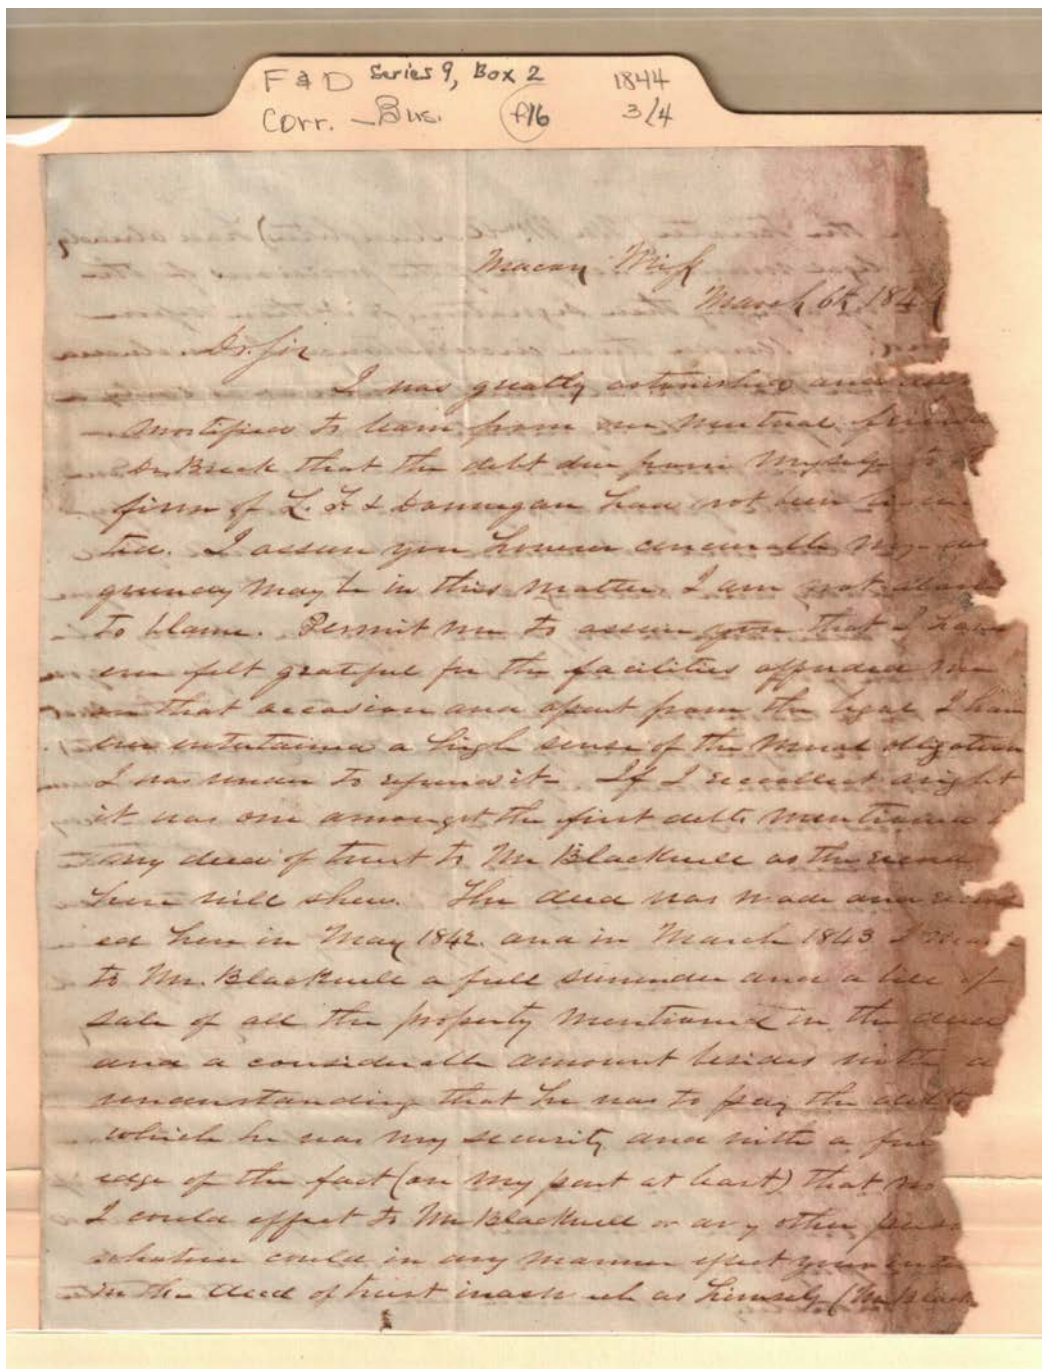 F & D Series 9, Box 2 1844
Corr. - Bus. f16 3/4
Macon Miss
March 6th 184
Dr. Sir
I was greatly astonished and
mortified to learn from our mutual friend
Dr. Buck that the debt due from myself to
firm of L. F. & Dannegan had not been
ted. I assure you however censurable my
gruency may be in this matter, I am not alone
to blame. Permit me to assure you that I have
ever felt grateful for the facilities afforded me
on that occasion and apart from the legal I have
ever entertained a high sense of the moral obligation
I was under to refund it. If I recollect aright
it was one amongst the first debts mentioned i
my deed of trust to Mr Blackwell as the
here will show. The deed was made and
ed here in May 1842 and in March 1843 I
to Mr. Blackwell a full surrender and a bill of
sale of all the property mentioned in the deed
and a considerable amount besides with a
understanding that he was to pay the debts
which he was my security and with a
edge of the fact (on my part at least) that no
I could effect to Mr Blackwell or any other
whatever could in any manner effect your
in the deed of trust inasmuch as himself (Mr Black